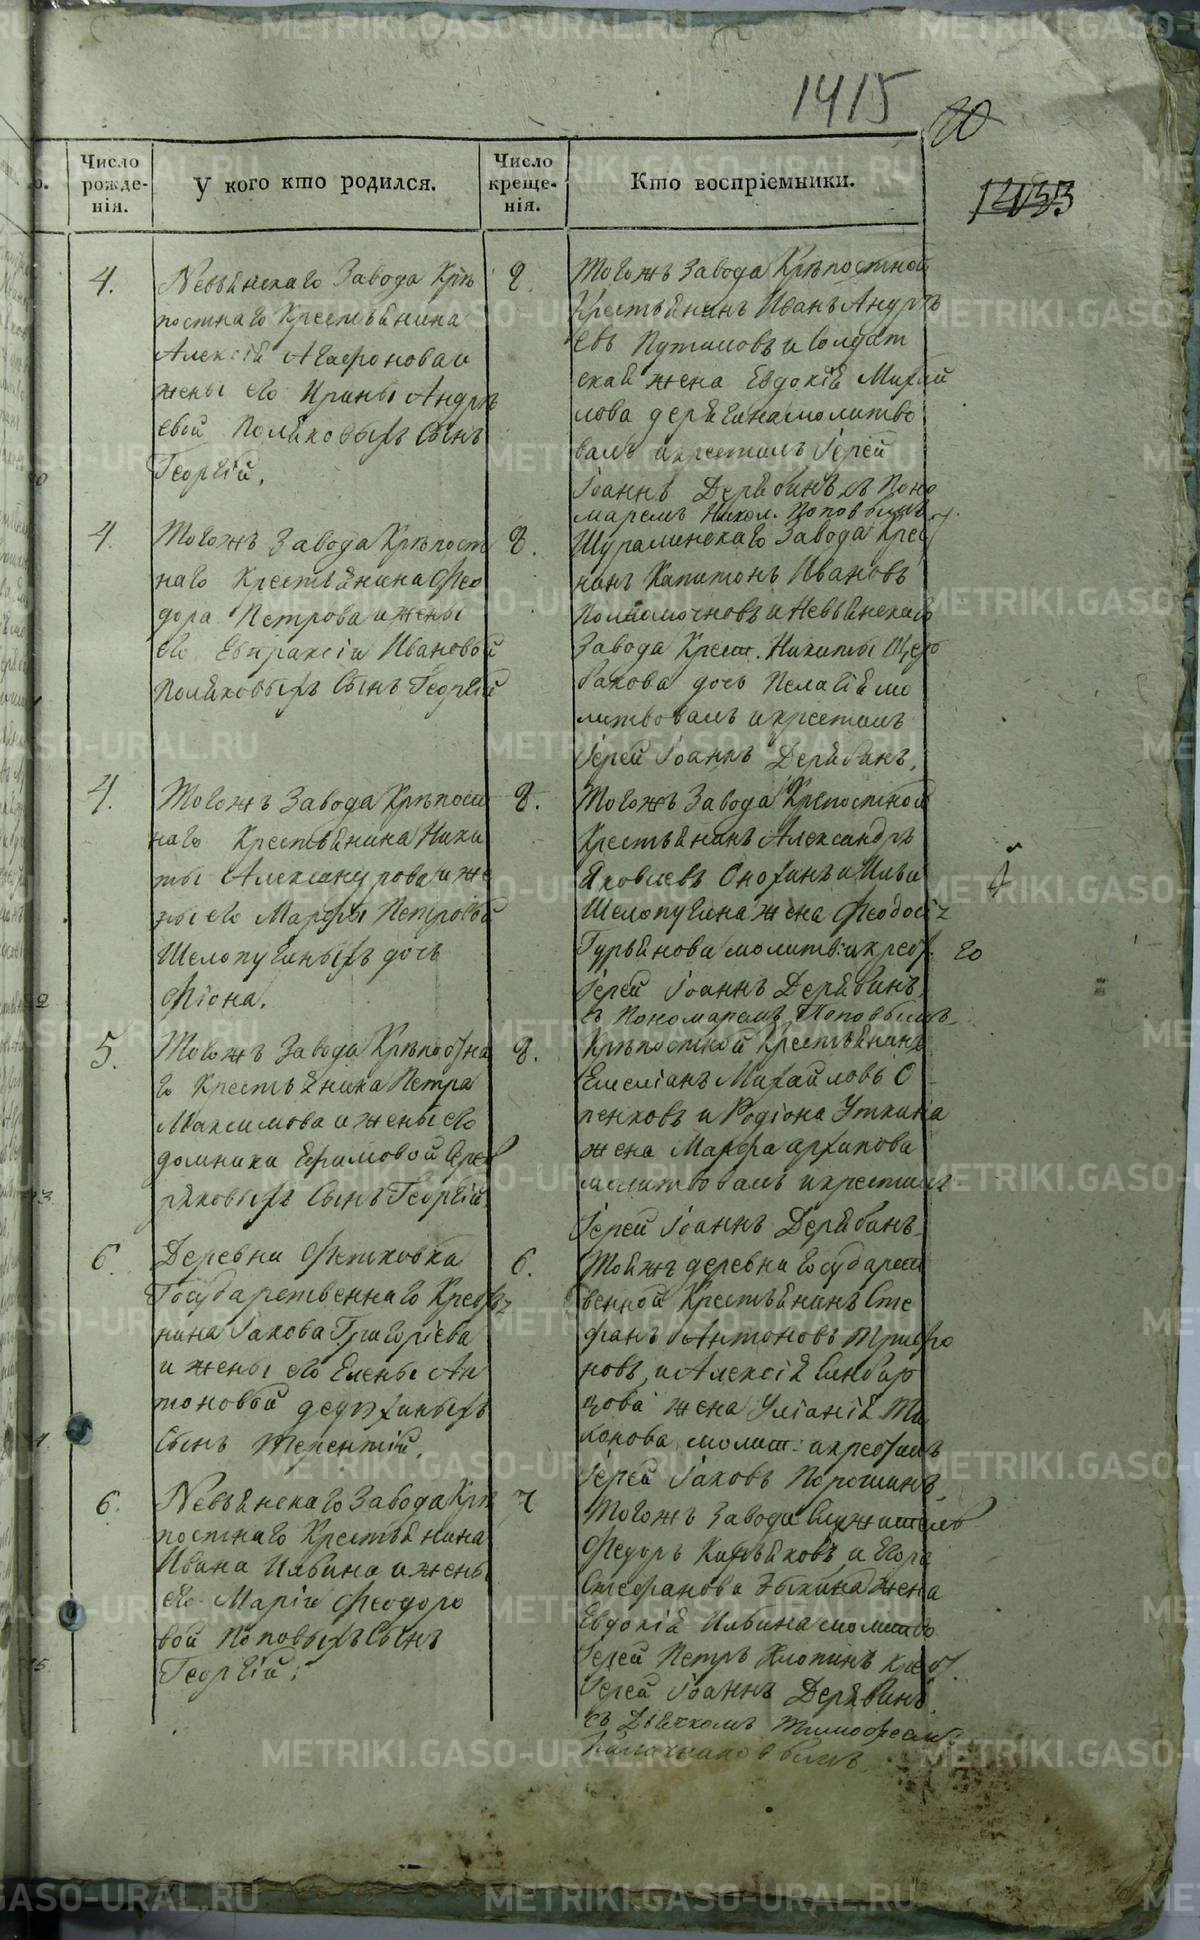 1415
20
1433
Число рожденія.
У кого кто родился.
Число крещенія.
Кто воспріемники.
4.
Невьянскаго Завода Крѣ
постнаго Крестьянина
Алексѣя Агафонова и
жены его Ирины Андрѣ
евой Поляковыхъ Сынъ
Георгій.
8.
Тогожъ Завода Крѣпостной
Крестьянинъ Иванъ Андрѣ
евъ Путиловъ и Солдат
ская жена Евдокія Михай
лова
молитво
валъ и крестилъ Іерей
Іоаннъ Дерябинъ съ Поно
маремъ Никол. Поповымъ
4.
Тогожъ Завода Крѣпост
наго Крестьянина Фео
дора Петрова и жены
его Евпраксіи Ивановой
Поляковыхъ Сынъ Георгій
8.
Шуралинскаго Завода Крес
нинъ Капитонъ Ивановъ
Полномочновъ и Невьянскаго
Завода Крест. Никиты Щер
бакова дочь Пелагія мо
литвовалъ и крестилъ
Іерей Іоаннъ Дерябинъ.
4.
Тогожъ Завода Крѣпост
наго Крестьянина Ники
ты Александрова и же
ны его Марфы Петровой
Шелопугиныхъ дочь
Фіона.
8.
Тогожъ Завода Крепостной
Крестьянинъ Александръ
Яковлевъ Снохинъ и Ильи
Шелопугина жена Феодосія
Гурьянова молитв. и крест.
Іерей Іоаннъ Дерябинъ
съ Пономаремъ Поповымъ
20
5.
Тогожъ Завода Крѣпостна
го Крестьянина Петра
Максимова и жены его
Домники Ефимовой
Сынъ Георгій.
8.
Крѣпостной Крестьянинъ
Емеліанъ Михайловъ О
пенковъ и Родіона Уткина
жена Марфа Архипова
молитвовалъ и крестилъ
Іерей Іоаннъ Дерябинъ
6.
Деревни Фетковка
Государственнаго Кресть
нина Іакова Григоріева
и жены его Елены Ан
тоновой
Сынъ Терентій.
6.
Тойжъ деревни Государст
венной Крестьянинъ Сте
фанъ Антоновъ Трифо
новъ, и Алексѣя
жена Уліанія Ти
хонова молит. и крестилъ
Іерей Іаковъ Порошинъ
6.
Невьянскаго Завода Крѣ
постнаго Крестьянина
Ивана Ильина и жены
его Маріи Феодоро
вой Поповыхъ Сынъ
Георгій.
7
Тогожъ Завода Служитель
Федоръ и Егора
Стефанова Зыкина жена
Евдокія Ильина молитво
Іерей Петръ Хлопинъ крест.
Іерей Іоаннъ Дерябинъ
съ Дьячкомъ Тимофеемъ